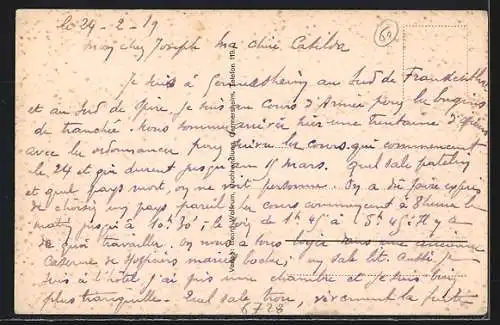 le 24-2-19
mon cher Joseph ma chère
Je suis à Germersheim au Sud de Frankenthal
et au Sud de Spire. Je suis au cours d'Armée pour les Engins
de tranchée. Nous sommes arrivés hier une trentaine d'
avec les ordonnances pour suivre les cours qui commencent
le 24 et qui durent jusqu'au 11 mars. Quel sale patelin
et quel pays mort, on ne voit personne. On a dû faire exprès
de choisir un pays pareil. Les cours commencent à 8 heures le
matin jusqu'à 10h30; le soir de 1h45 à 5h45. Il y a
de quoi travailler. On nous a tous logés dans une ancienne
caserne de boches, un sale lit. Aussi je
suis à l'hôtel j'ai pris une chambre et je suis bien
plus tranquille. Quel sale trou, vivement la
60
Verlag Georg Wolfrum, Buchhandlung, Germersheim, Telefon 119.
6728